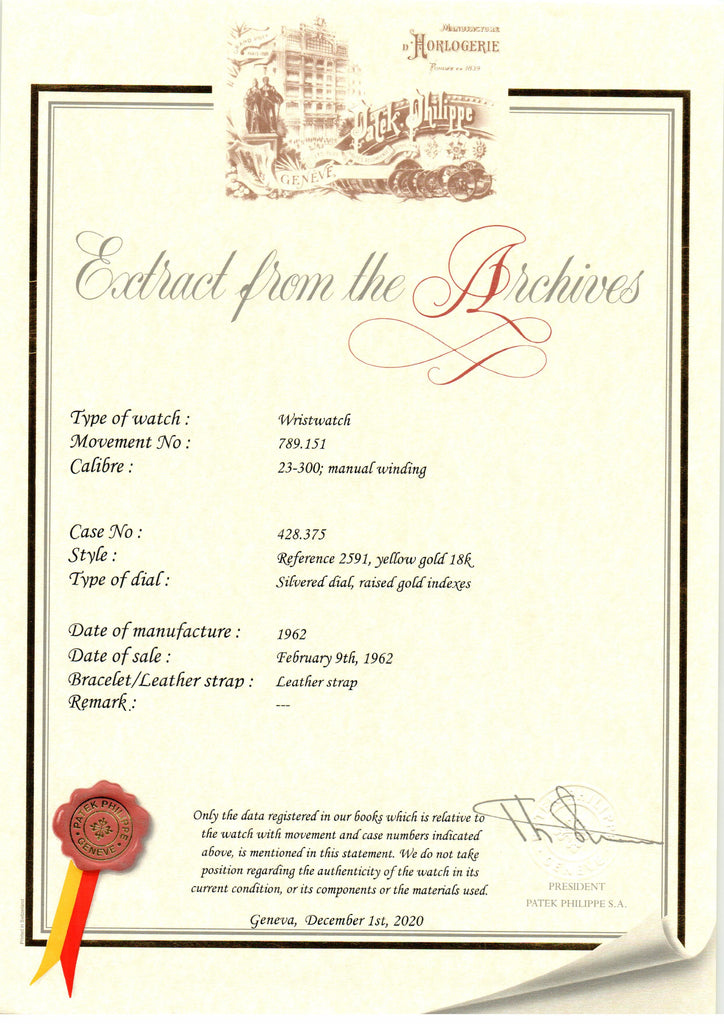 MANUFACTURE
D'HORLOGERIE
FONDÉE EN 1839
Patek Philippe
GENÈVE
Extract from the Archives
Type of watch : Wristwatch
Movement No : 789.151
Calibre : 23-300; manual winding
Case No : 428.375
Style : Reference 2591, yellow gold 18k
Type of dial : Silvered dial, raised gold indexes
Date of manufacture : 1962
Date of sale : February 9th, 1962
Bracelet/Leather strap : Leather strap
Remark : ---
Only the data registered in our books which is relative to
the watch with movement and case numbers indicated
above, is mentioned in this statement. We do not take
position regarding the authenticity of the watch in its
current condition, or its components or the materials used.
Geneva, December 1st, 2020
PATEK PHILIPPE
GENEVE
PRESIDENT
PATEK PHILIPPE S.A.
Printed in Switzerland